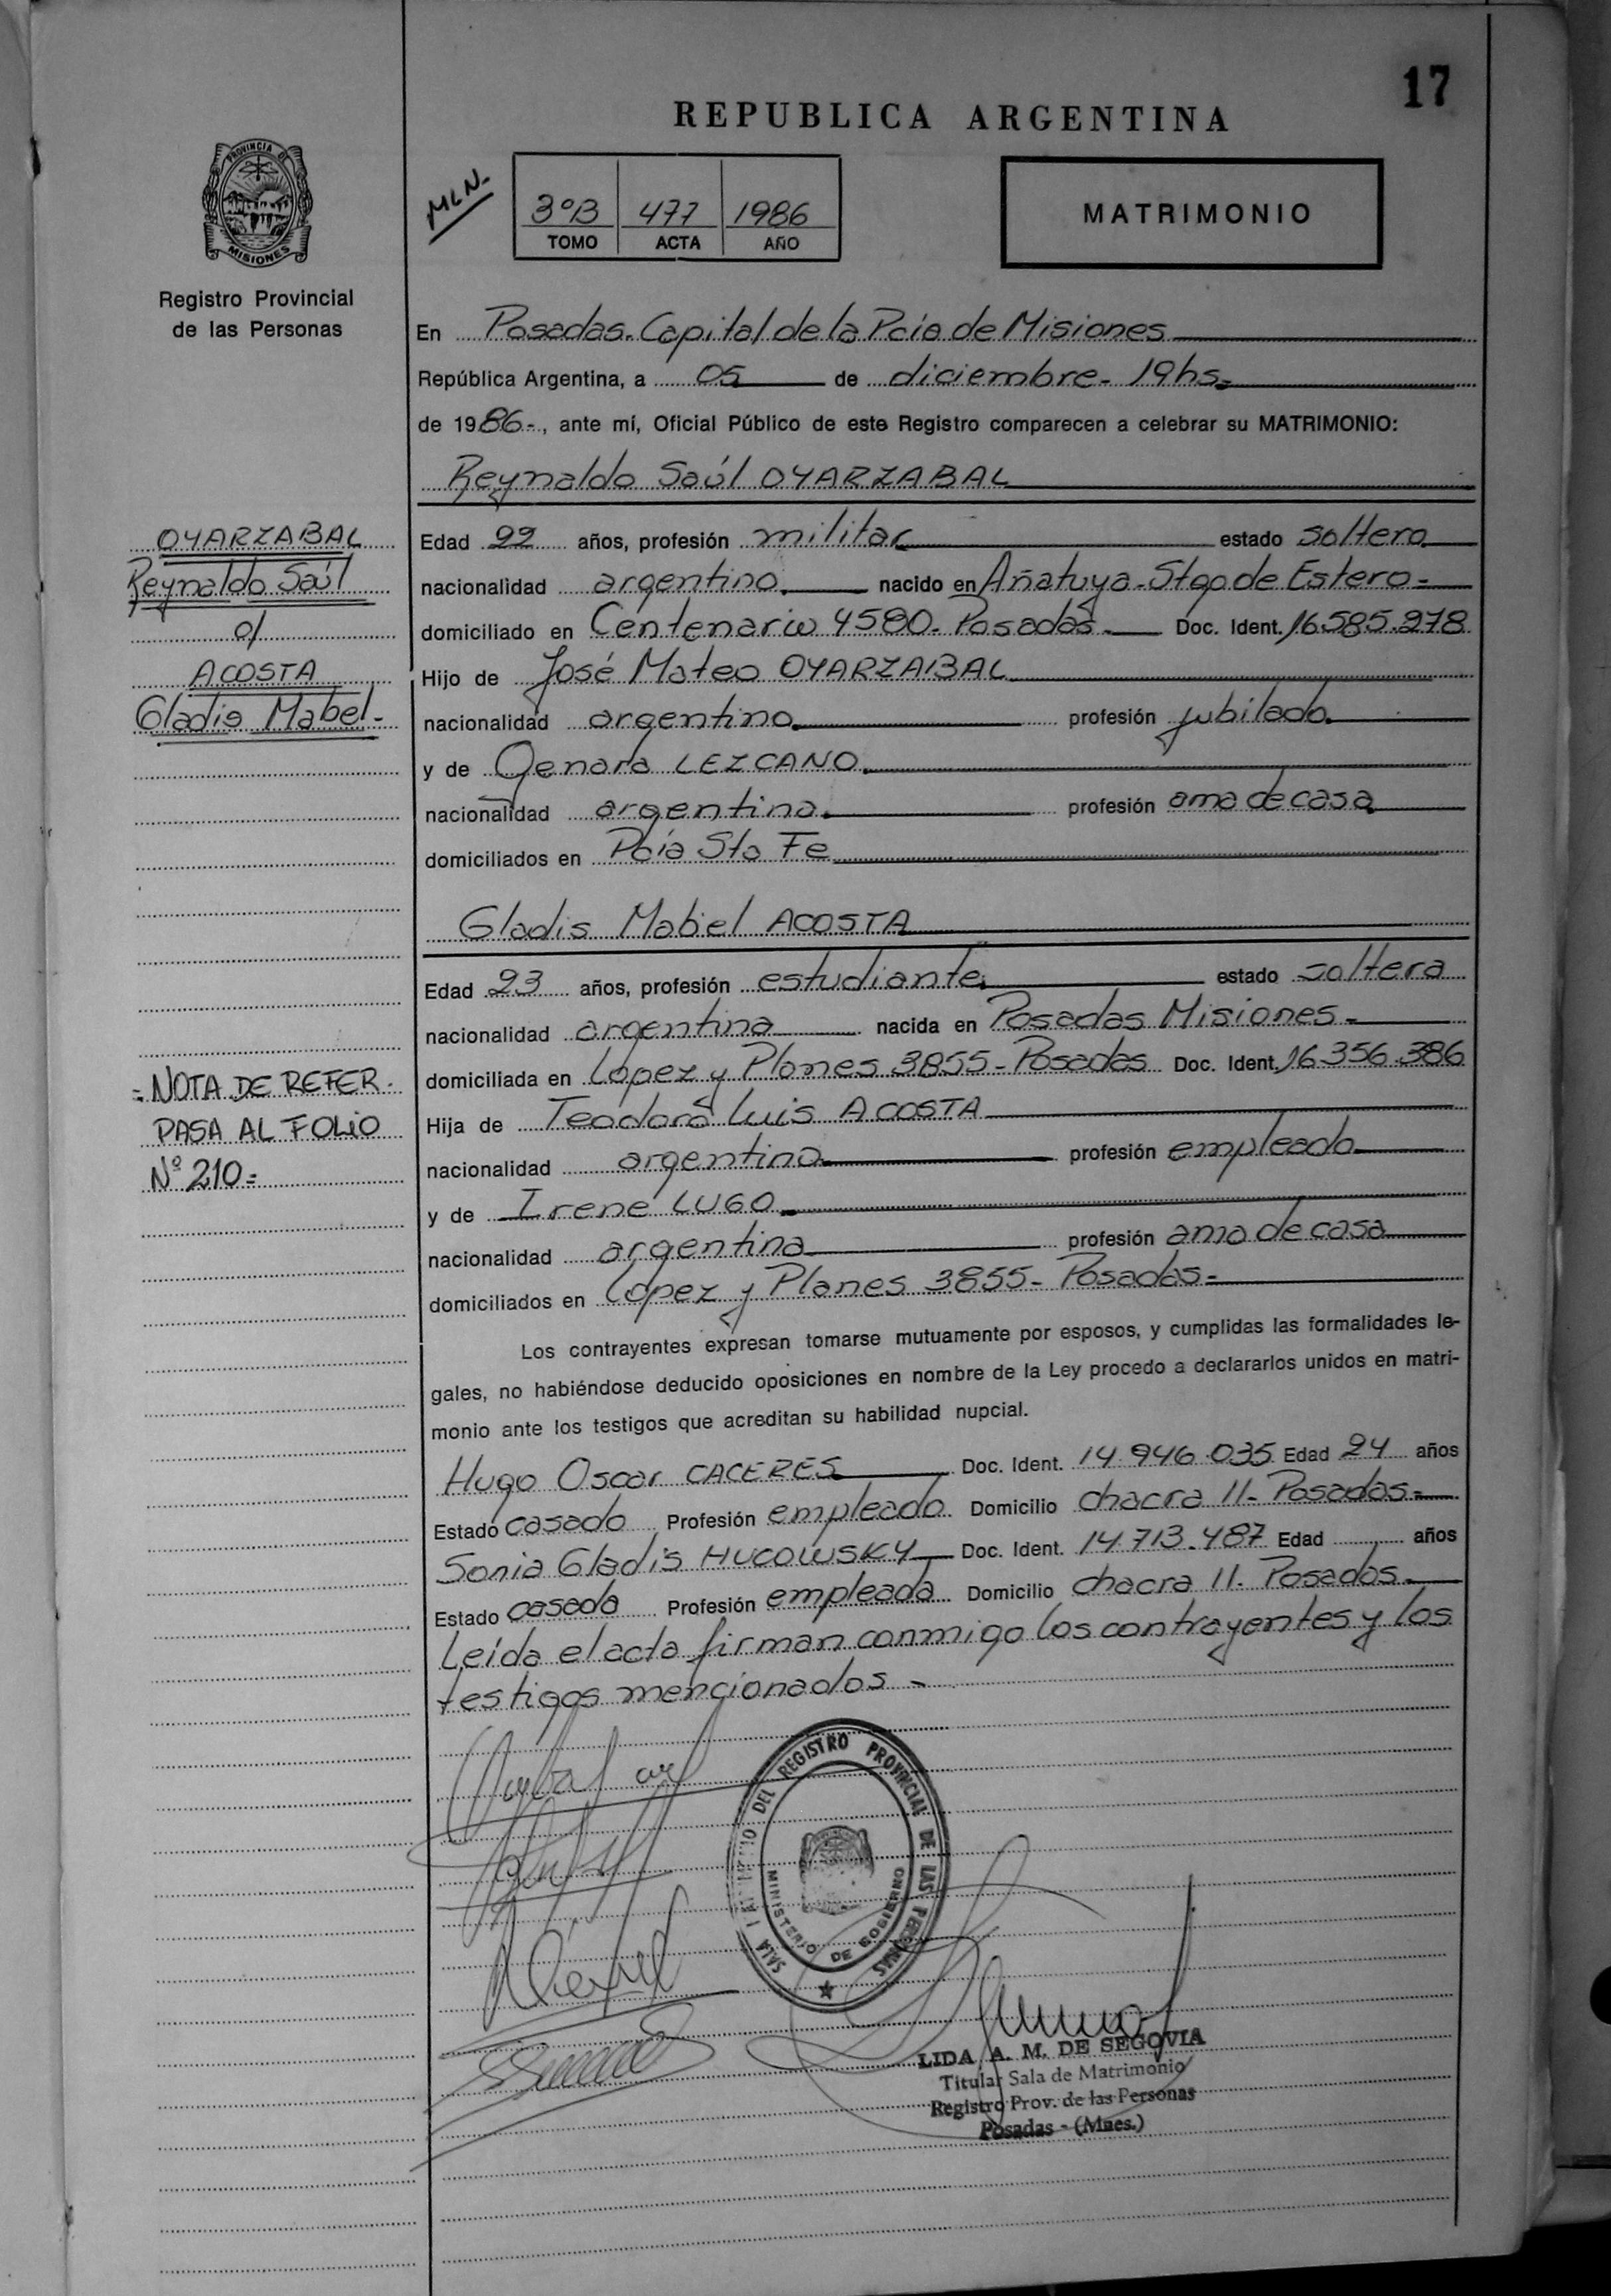 17
REPUBLICA ARGENTINA
PROVINCIA DE
MISIONES
Registro Provincial
de las Personas
MLN-
3ºB 477 1986
TOMO ACTA AÑO
MATRIMONIO
En Posadas. Capital de la Pcia de Misiones
República Argentina, a 05 de diciembre - 19hs-
de 1986-, ante mí, Oficial Público de este Registro comparecen a celebrar su MATRIMONIO:
Reynaldo Saúl OYARZABAL
OYARZABAL
Reynaldo Saúl
c/
ACOSTA
Gladis Mabel-
Edad 22 años, profesión militar estado soltero
nacionalidad argentino. nacido en Añatuya-Stgo de Estero-
domiciliado en Centenario 4580- Posadas- Doc. Ident. 16.585.278
Hijo de José Mateo OYARZABAL
nacionalidad argentino profesión jubilado
y de Genara LEZCANO
nacionalidad argentina profesión ama de casa
domiciliados en Pcia Sta Fe
Gladis Mabel ACOSTA
Edad 23 años, profesión estudiante estado soltera
nacionalidad argentina nacida en Posadas Misiones-
domiciliada en López y Planes 3855- Posadas Doc. Ident. 16.356.386
Hija de Teodoro Luis ACOSTA
nacionalidad argentino profesión empleado
y de Irene LUGO
nacionalidad argentina profesión ama de casa
domiciliados en López y Planes 3855- Posadas-
= NOTA DE REFER-
PASA AL FOLIO
Nº 210=
Los contrayentes expresan tomarse mutuamente por esposos, y cumplidas las formalidades le-
gales, no habiéndose deducido oposiciones en nombre de la Ley procedo a declararlos unidos en matri-
monio ante los testigos que acreditan su habilidad nupcial.
Hugo Oscar CACERES Doc. Ident. 14.946.035 Edad 24 años
Estado casado Profesión empleado Domicilio chacra 11- Posadas-
Sonia Gladis HUCOWSKY Doc. Ident. 14.713.487 Edad años
Estado casada Profesión empleada Domicilio chacra 11. Posadas-
Leída el acta firman conmigo los contrayentes y los
testigos mencionados-
DEL REGISTRO PROVINCIAL DE LAS PERSONAS
SALA
MINISTERIO DE GOBIERNO
LIDA A. M. DE SEGOVIA
Titular Sala de Matrimonio
Registro Prov. de las Personas
Posadas - (Mnes.)